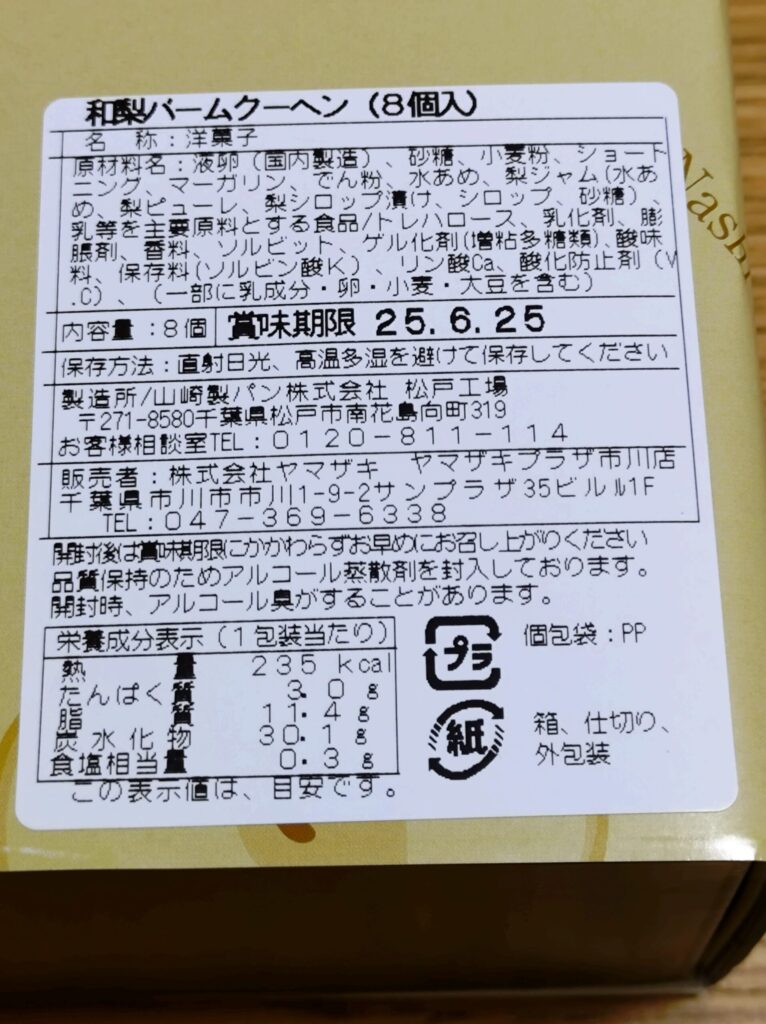 和梨バームクーヘン（8個入）
名　称：洋菓子
原材料名：液卵（国内製造）、砂糖、小麦粉、ショート
ニング、マーガリン、でん粉、水あめ、梨ジャム(水あ
め、梨ピューレ、梨シロップ漬け、シロップ、砂糖）、
乳等を主要原料とする食品/トレハロース、乳化剤、膨
脹剤、香料、ソルビット、ゲル化剤(増粘多糖類)、酸味
料、保存料(ソルビン酸K）、リン酸Ca、酸化防止剤（V
.C）、（一部に乳成分・卵・小麦・大豆を含む）
内容量：8個　賞味期限 25.6.25
保存方法：直射日光、高温多湿を避けて保存してください
製造所/山崎製パン株式会社 松戸工場
〒271-8580千葉県松戸市南花島向町319
お客様相談室TEL：０１２０－８１１－１１４
販売者：株式会社ヤマザキ　ヤマザキプラザ市川店
千葉県市川市市川1-9-2サンプラザ35ビルル1F
TEL：０４７－３６９－６３３８
開封後は賞味期限にかかわらずお早めにお召し上がりください
品質保持のためアルコール蒸散剤を封入しております。
開封時、アルコール臭がすることがあります。
栄養成分表示（１包装当たり）
熱量 235 kcal
たんぱく質 3.0 g
脂質 11.4 g
炭水化物 30.1 g
食塩相当量 0.3 g
この表示値は、目安です。
プラ 個包装：PP
紙 箱、仕切り、
外包装
Nashi